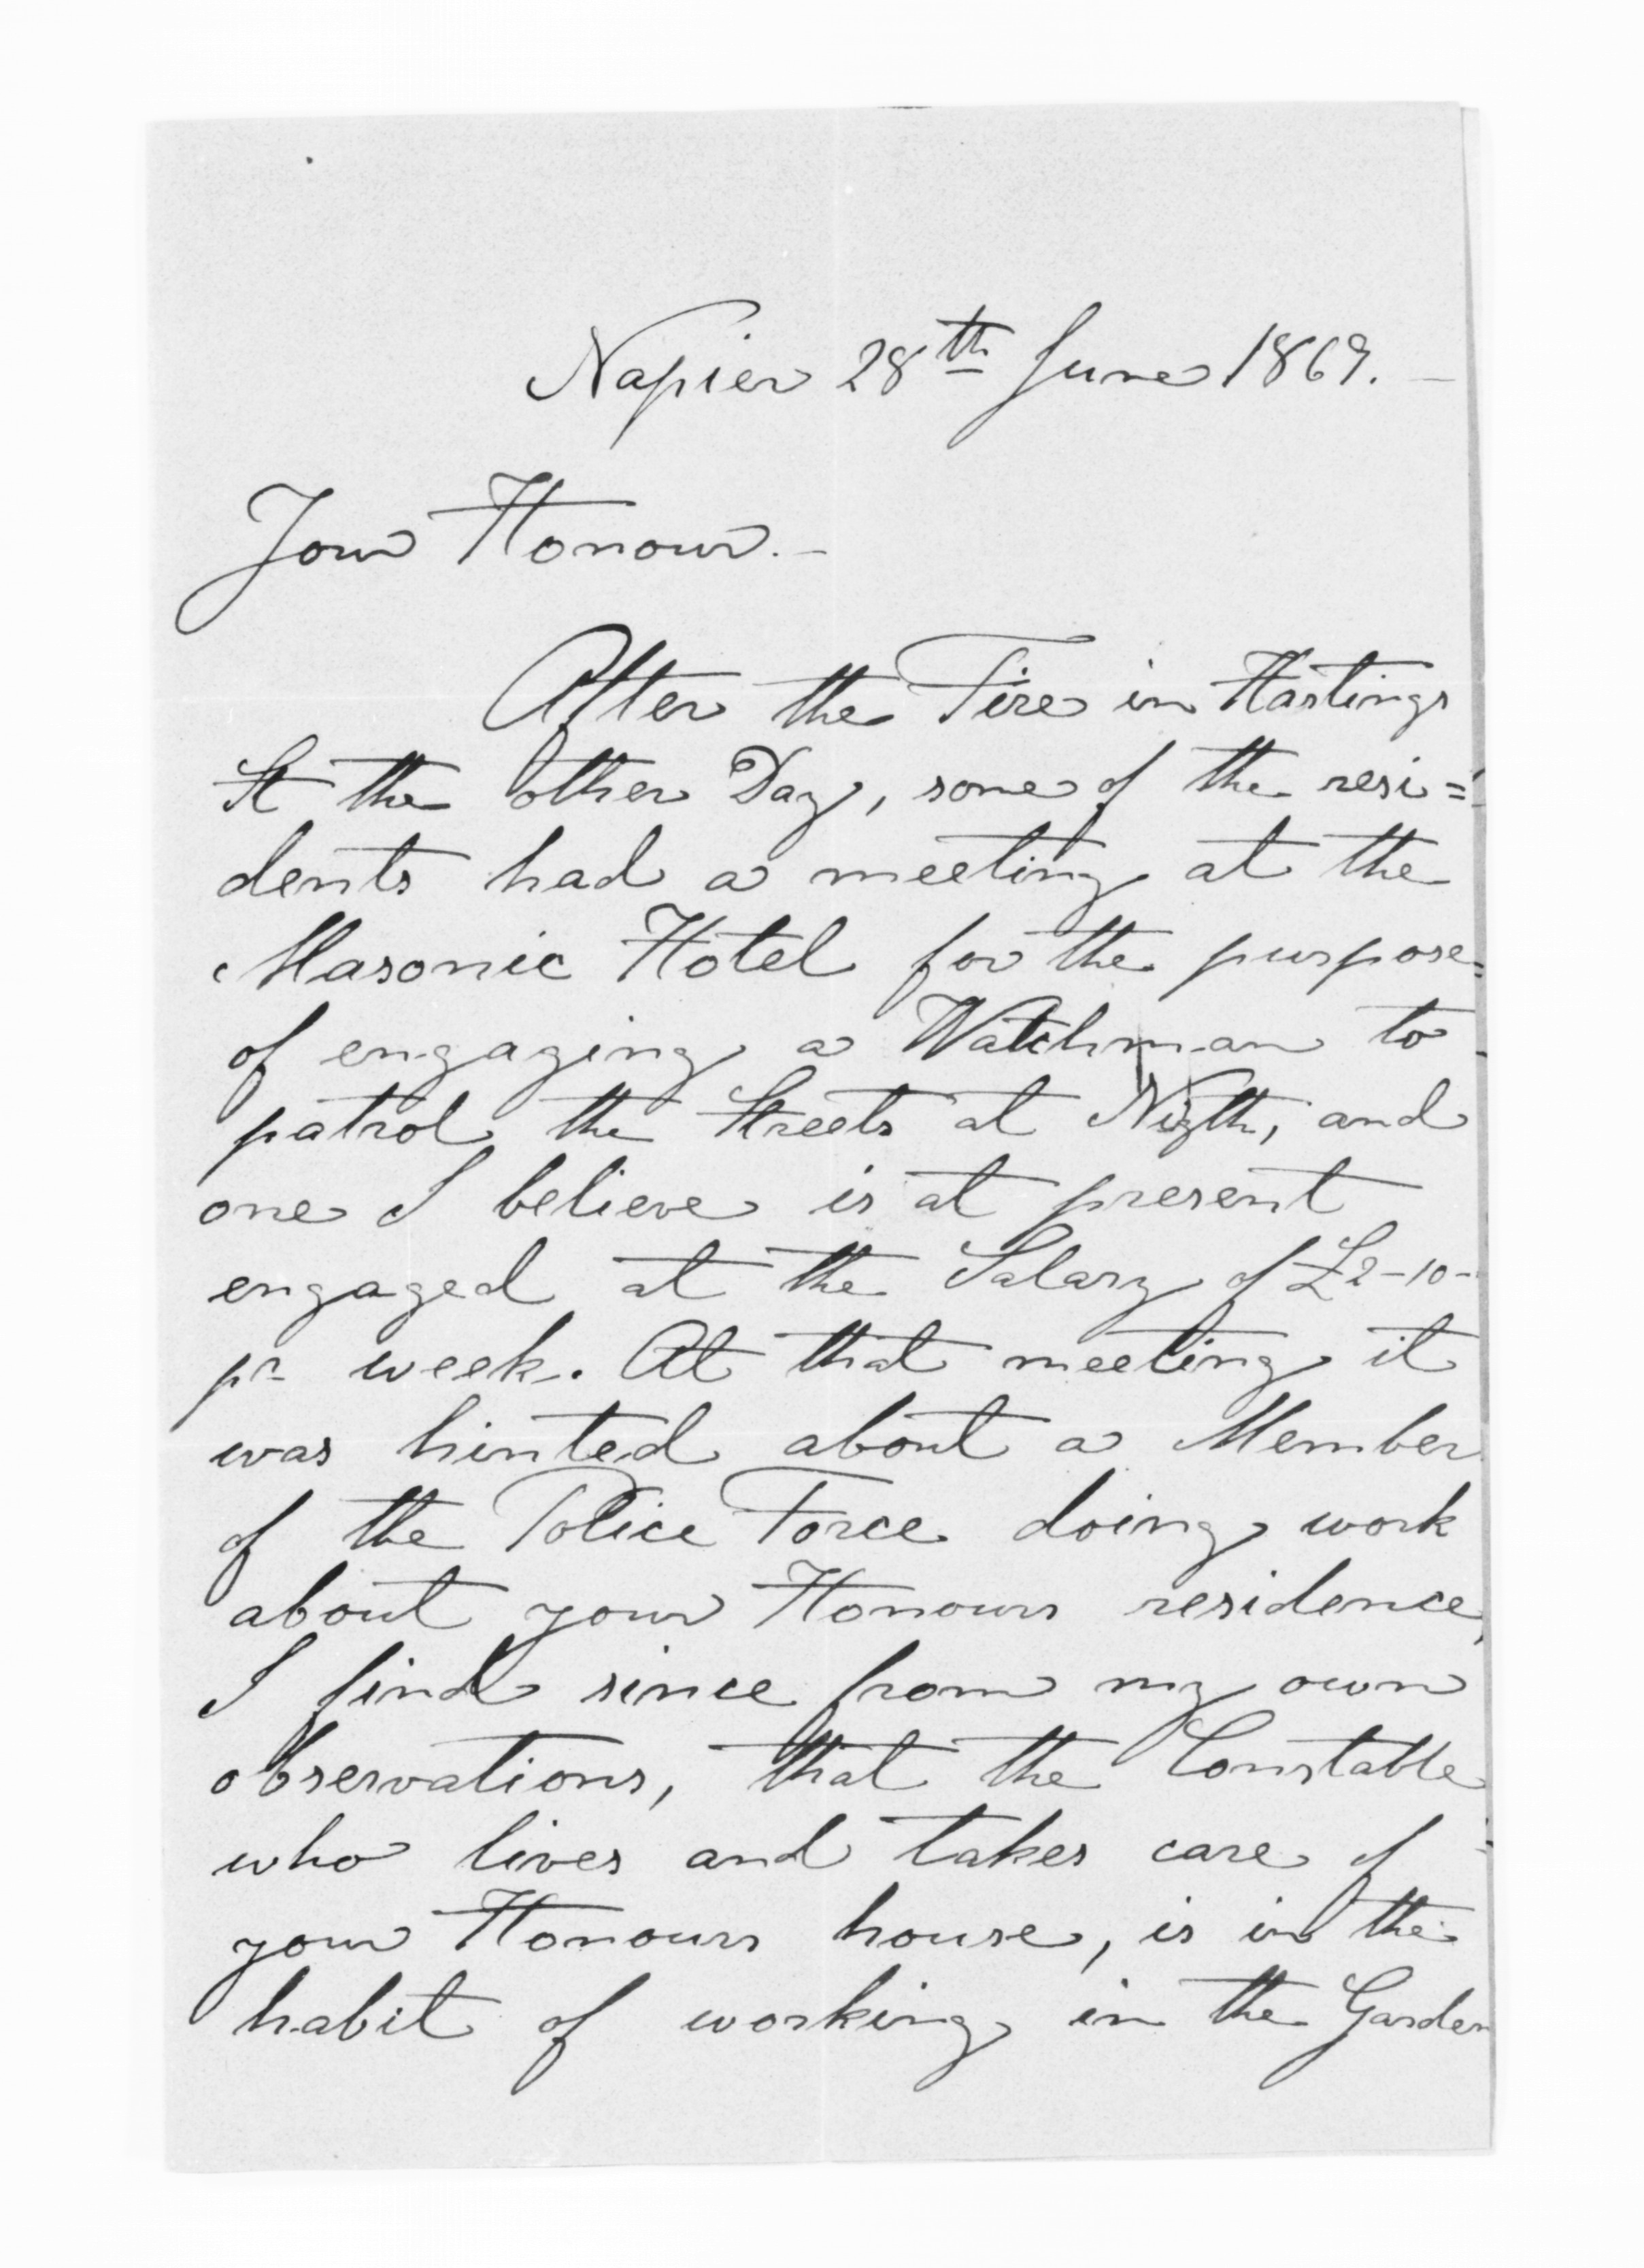 Napier 28th June 1869. -
Your Honour. -
After the Fire in Hastings
St the other Day, some of the resi=
dents had a meeting at the
Masonic Hotel for the purpose
of engaging a Watchman to
patrol the Streets at Nigth, and
one I believe is at present
engaged at the Salary of £2-10-
pr week. At that meeting it
was hinted about a Member
of the Police Force doing work
about your Honours residence,
I find since from my own
observations, that the Constable
who lives and takes care of
your Honours house, is in the
habit of working in the Garden